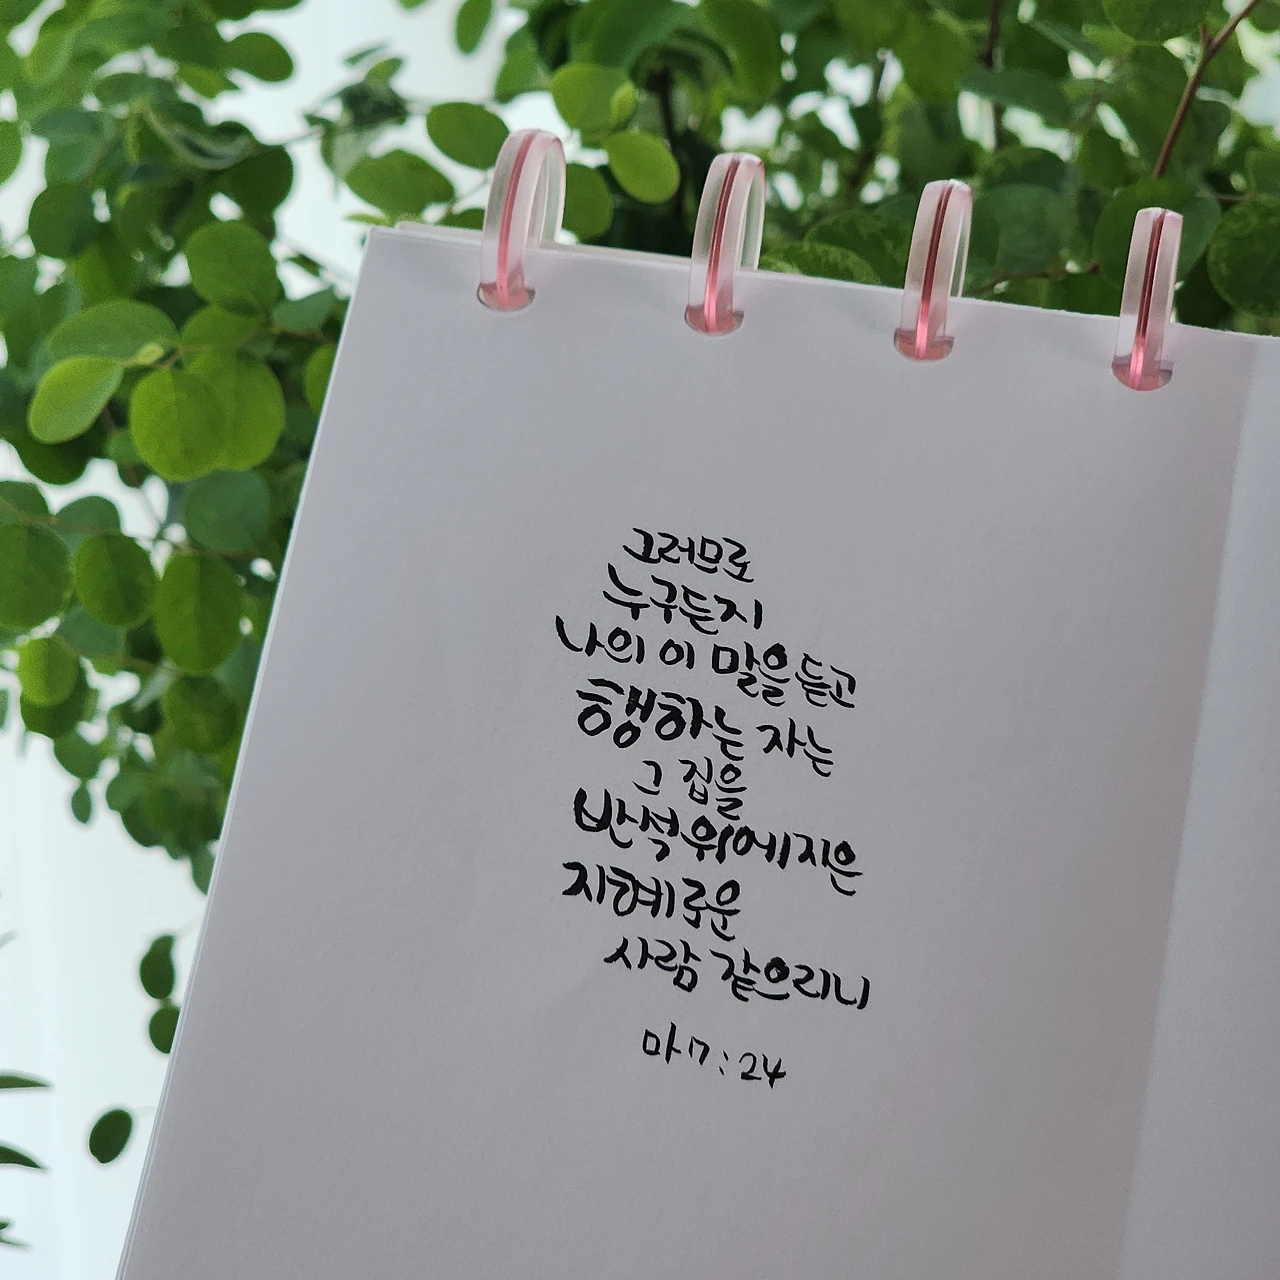 그러므로
누구든지
나의 이 말을 듣고
행하는 자는
그 집을
반석위에지은
지혜로운
사람 같으리니
마7:24